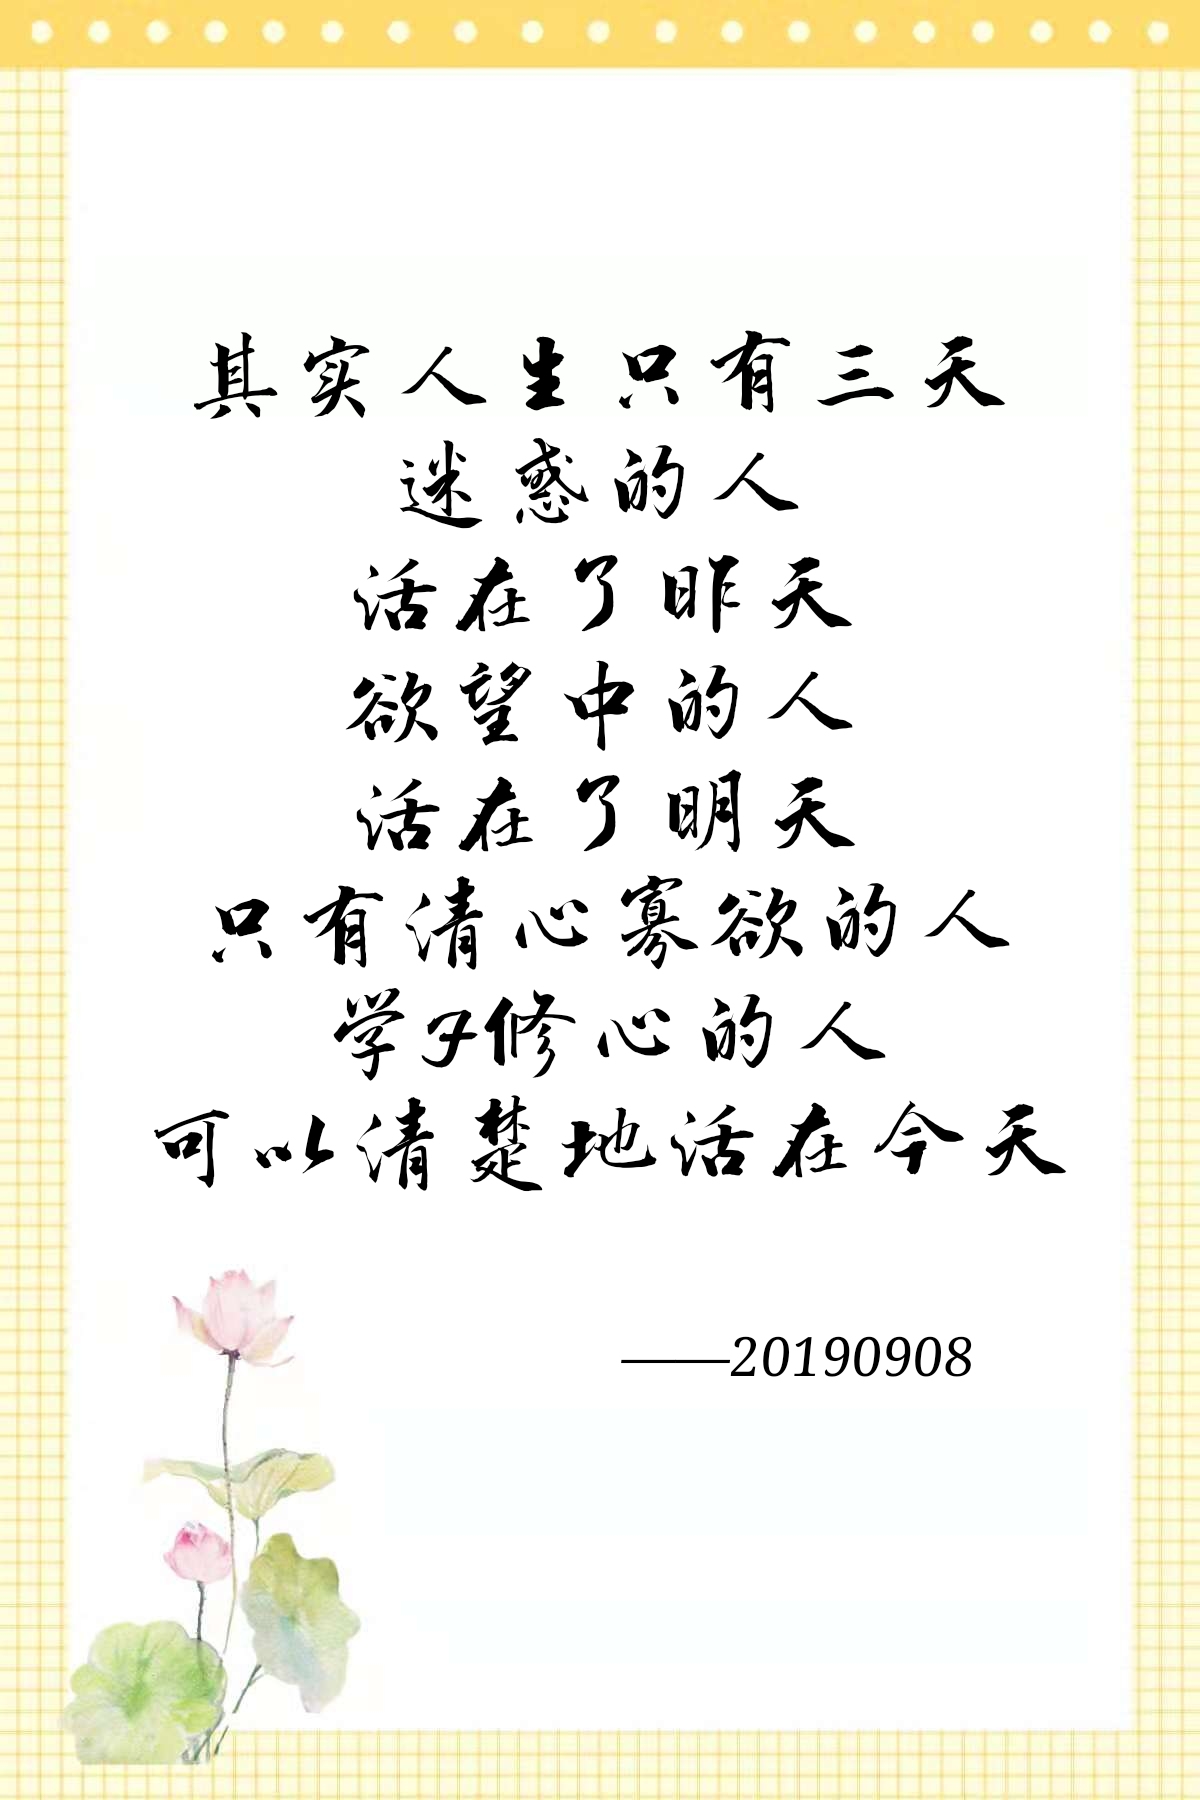 其实人生只有三天
迷惑的人
活在了昨天
欲望中的人
活在了明天
只有清心寡欲的人
学习修心的人
可以清楚地活在今天
——20190908